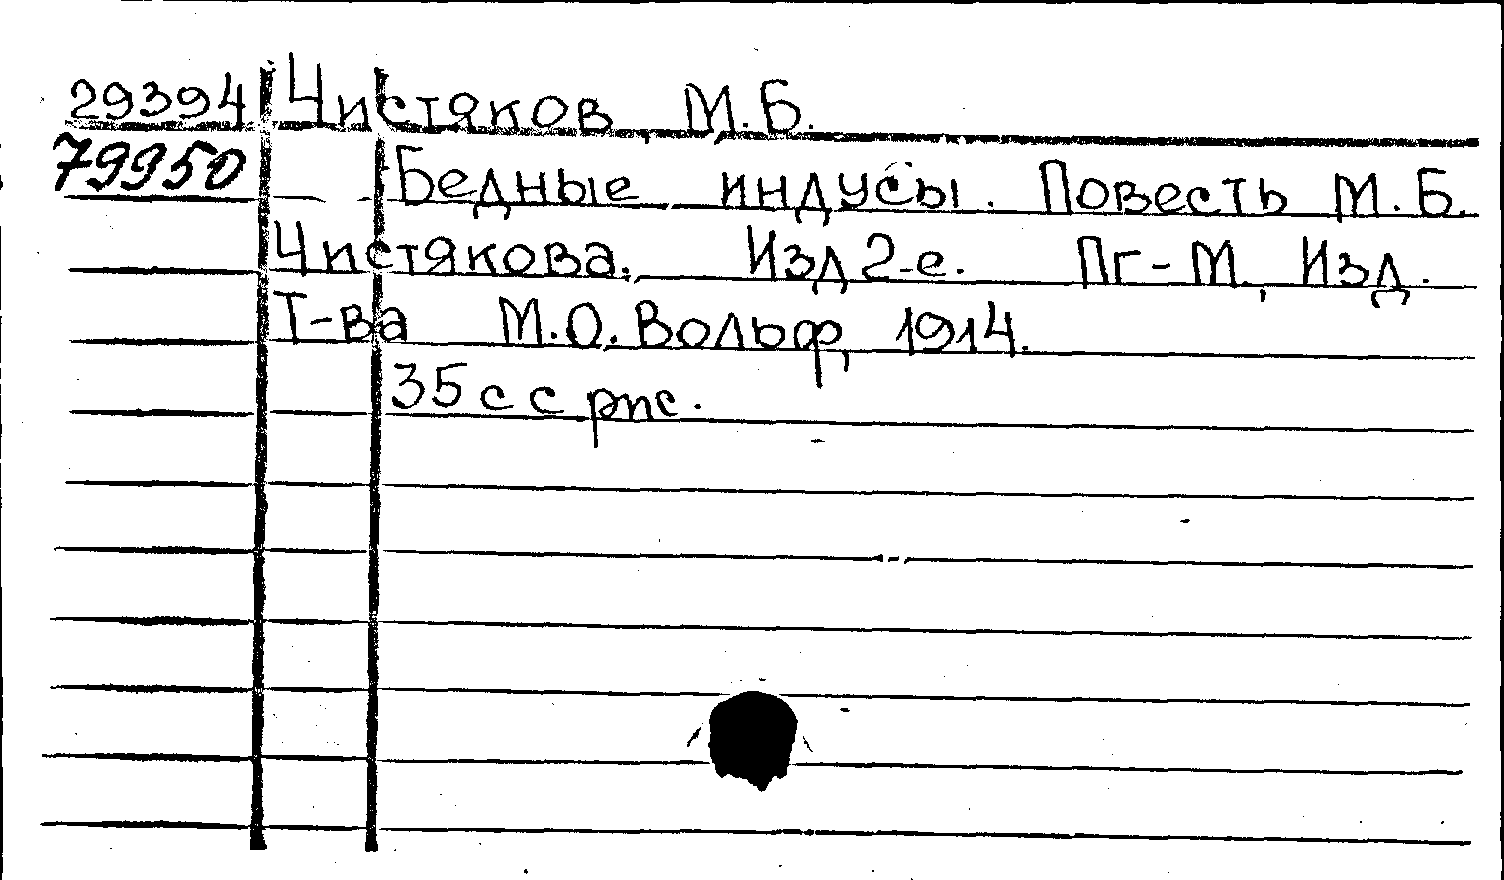 29394 Чистяков М.Б.
79950 Бедные индусы. Повесть М.Б.
Чистякова. Изд 2-е. Пг-М., Изд.
Т-ва М.О. Вольф, 1914.
35 с с рис.